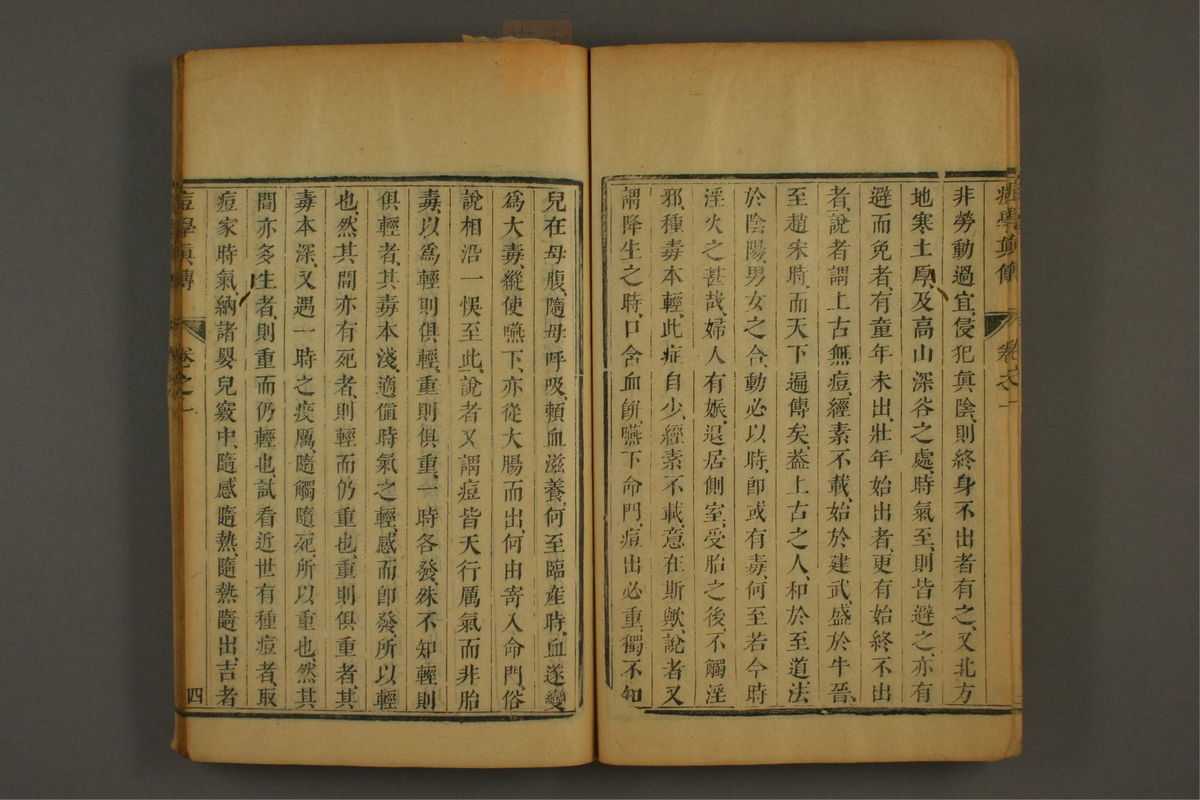 痘學真傳 卷之一
非勞動過宜、侵犯真陰、則終身不出者有之、又北方
地寒土厚、及高山深谷之處、時氣至、則皆避之、亦有
避而免者、有童年未出壯年始出者、更有始終不出
者、說者謂上古無痘、經素不載、始於建武盛於牛晉、
至趙宋時、而天下遍傳矣、葢上古之人、和於至道法
於陰陽、男女之合、動必以時、卽或有毒、何至若今時
淫火之甚哉、婦人有娠、退居側室、受胎之後、不觸淫
邪、種毒本輕、此症自少、經素不載、意在斯歟、說者又
謂降生之時、口含血餅、嚥下命門、痘出必重、獨不知
兒在母腹、隨母呼吸、賴血滋養、何至臨産時、血遂變
爲大毒、縱使嚥下、亦從大腸而出、何由寄入命門、俗
說相沿一悞至此、說者又謂痘皆天行厲氣而非胎
毒、以爲輕則俱輕、重則俱重、一時各發、殊不知輕則
俱輕者、其毒本淺、適值時氣之輕、感而卽發、所以輕
也、然其間亦有死者、則輕而仍重也、重則俱重者、其
毒本深、又遇一時之疫厲、隨觸隨死、所以重也、然其
間亦多生者、則重而仍輕也、試看近世有種痘者、取
痘家時氣納諸嬰兒竅中、隨感隨熱、隨熱隨出、吉者
痘學真傳 卷之一 四